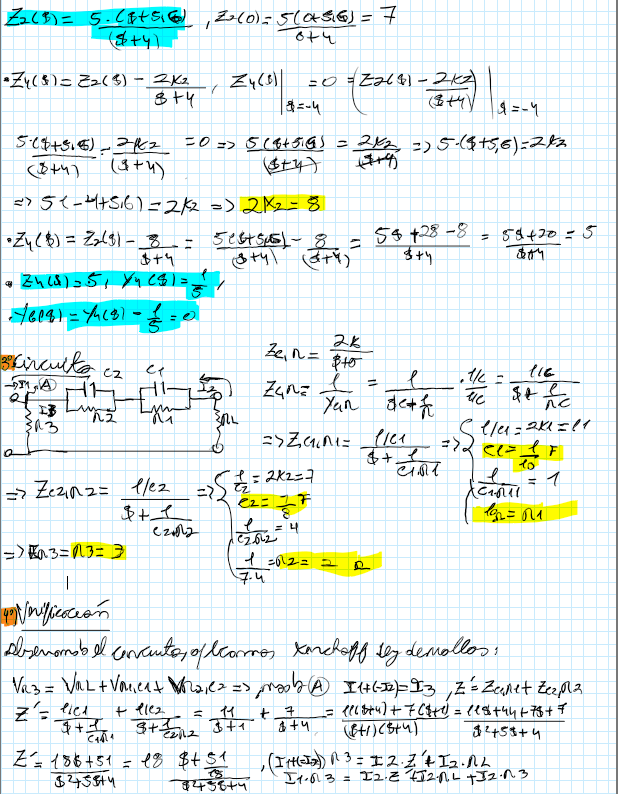 Z2($) = 5·($+5,6)/($+4), Z2(0) = 5(0+5,6)/0+4 = 7
·Z4($) = Z2($) - 2K2/$+4, Z4($)|$=-4 = 0 = (Z2($) - 2K2/($+4))|$=-4
5·($+5,6)/($+4) - 2K2/($+4) = 0 => 5($+5,6)/($+4) = 2K2/($+4) => 5·($+5,6) = 2K2
=> 5(-4+5,6) = 2K2 => 2K2 = 8
·Z4($) = Z2($) - 8/$+4 = 5($+5,6)/($+4) - 8/($+4) = 5$+28-8/$+4 = 5$+20/$+4 = 5
· Z4($) = 5, Y4($) = 1/5,
·Y6($) = Y4($) - 1/5 = 0
3º Circuito
C2 C1
I1 A I2
I3 R3 R2 R1 RL
Zc,R = 2K/$+σ
Zc,R = 1/Yc,R = 1/$C+1/R · 1/C/1/C = 1/C/$+1/RC
=> Zc1,R1 = 1/C1/$+1/C1·R1 => { 1/C1 = 2K1 = 11
C1 = 1/10 F
1/C1·R1 = 1
10Ω = R1
=> Zc2,R2 = 1/C2/$+1/C2·R2 => { 1/C2 = 2K2 = 7
C2 = 1/8 F
1/C2·R2 = 4
1/7·4 = R2 = Ω
=> R3 = R3 = 3
4º Verificación
Observando el circuito, aplicamos Kirchoff ley de mallas:
VR3 = VRL + VR1,C1 + VR2,C2 => nodo A I1+(-I2) = I3, Z' = Zc1,R1 + Zc2,R2
Z' = 1/C1/$+1/C1R1 + 1/C2/$+1/C2R2 = 11/$+1 + 7/$+4 = 11($+4)+7($+1)/($+1)($+4) = 11$+44+7$+7/$²+5$+4
Z' = 18$+51/$²+5$+4 = 18 $+51/18/$²+5$+4, (I1+(-I2))·R3 = I2·Z'+I2·RL
I1·R3 = I2·Z'+I2·RL+I2·R3